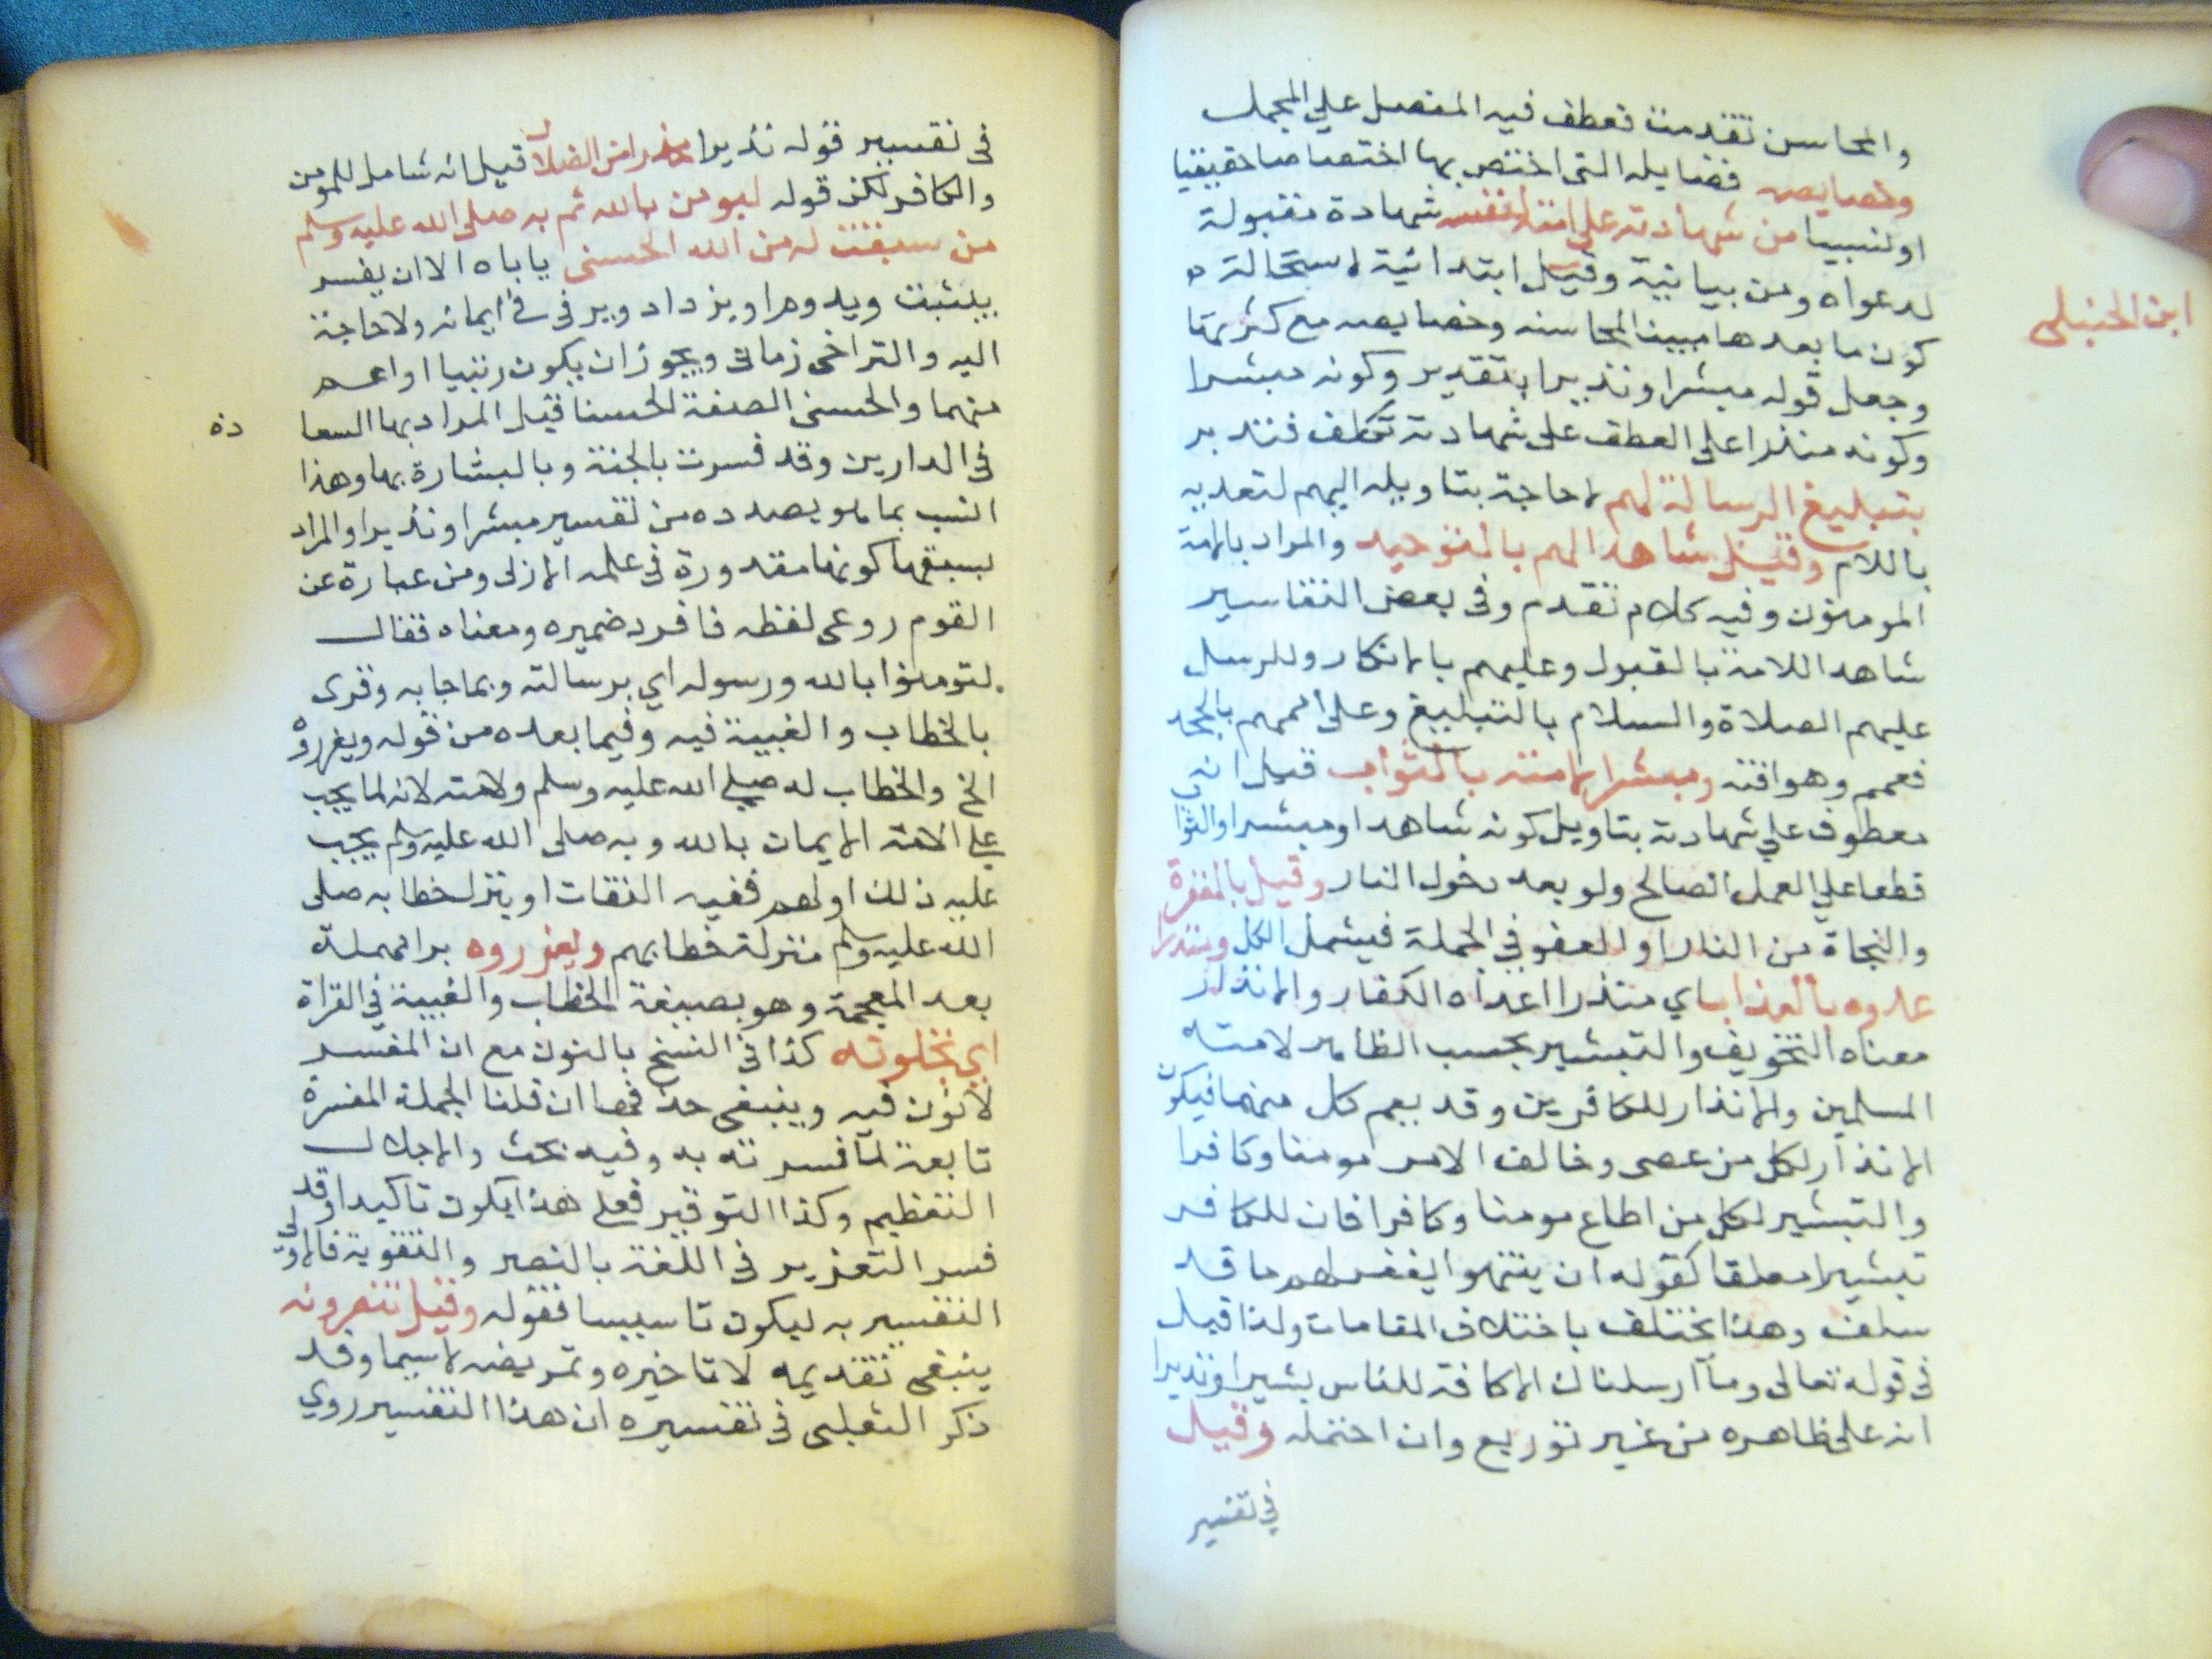 والمحاسن تقدمت فعطف فيه المفصل علي المجمل
وخصايصه فضايله التي اختص بها اختصاصا حقيقيا
او نسبيا من شهادته على امته لنفسه شهادة مقبولة
لدعواه ومن بيانية وقيل ابتدائية لاستحالة
كون ما بعدها مبينا لمحاسنه وخصايصه مع كثرتها
ابن الحنبلى
وجعل قوله مبشرا ونذيرا بتقدير وكونه مبشرا
وكونه منذرا على العطف على شهادته تكلف فتدبر
بتبليغ الرسالة لهم لا حاجة بتاويله اليهم لتعديه
باللام وقيل شاهدا لهم بالتوحيد والمراد بالامة
المومنون وفيه كلام تقدم وفى بعض التفاسير
شاهدا للامة بالقبول وعليهم بالانكار وللرسل
عليهم الصلاة والسلام بالتبليغ وعلى اممهم بالجحد
فعمم وهو افته ومبشرا لامته بالثواب قيل انه
معطوف علي شهادته بتاويل كونه شاهدا ومبشرا والثوا
قطعا علي العمل الصالح ولو بعد دخول النار وقيل بالمغفرة
والنجاة من النار او العفو في الجملة فيشمل الكل ومنذرا
عدوه بالعذاب اي منذرا اعداه الكفار والانذار
معناه التخويف والتبشير بحسب الظاهر لامته
المسلمين والانذار للكافرين وقد يعم كل منهما فيكون
الانذار لكل من عصى وخالف الامر مومنا وكافرا
والتبشير لكل من اطاع مومنا وكافرا فان للكافر
تبشيرا معلقا كقوله ان ينتهوا يغفر لهم ما قد
سلف وهذا يختلف باختلاف المقامات ولذا قيل
فى قوله تعالى وما ارسلناك الا كافة للناس بشيرا ونذيرا
انه على ظاهره من غير توزيع وان احتمله وقيل
في تفسير
فى تفسير قوله نذيرا محذرا من الضلال قيل انه شامل للمومن
والكافر لكن قوله ليومن بالله ثم به صلى الله عليه وسلم
من سبقت له من الله الحسنى ياباه الا ان يفسر
بيثبت ويدوم او يزداد ويرقى فى ايمانه ولا حاجة
اليه والتراخى زمانى ويجوز ان يكون رتبيا او اعم
منهما والحسنى الصفة الحسنا قيل المراد بها السعا
دة
فى الدارين وقد فسرت بالجنة وبالبشارة بها وهذا
انسب بما هو بصدده من تفسير مبشرا ونذيرا والمراد
بسبقها كونها مقدورة فى علمه الازلى ومن عبارة عن
القوم روعى لفظه فافرد ضميره ومعناه فقال
لتومنوا بالله ورسوله اي برسالته وبما جا به وقرى
بالخطاب والغيبة فيه وفيما بعده من قوله ويعزروه
الخ والخطاب له صلى الله عليه وسلم ولامته لانه لما يجب
علي الامة الايمان بالله وبه صلى الله عليه وسلم يجب
عليه ذلك او لهم ففيه التفات او ينزل خطابه صلى
الله عليه وسلم منزلة خطابهم ويعزروه برا مهملة
بعد المعجمة وهو بصيغة الخطاب والغيبة في القراة
اي تجلونه كذا فى النسخ بالنون مع ان المفسر
لا نون فيه وينبغى حذفها ان قلنا الجملة المفسرة
تابعة لما فسرته به وفيه بحث والاجلال
التعظيم وكذا التوقير فعلي هذا يكون تاكيدا وقد
فسر التعزير فى اللغة بالنصر والتقوية فالاولي
التفسير به ليكون تاسيسا فقوله وقيل تنصرونه
ينبغى تقديمه لا تاخيره وتمريضه لاسيما وقد
ذكر الثعلبى فى تفسيره ان هذا التفسير روي